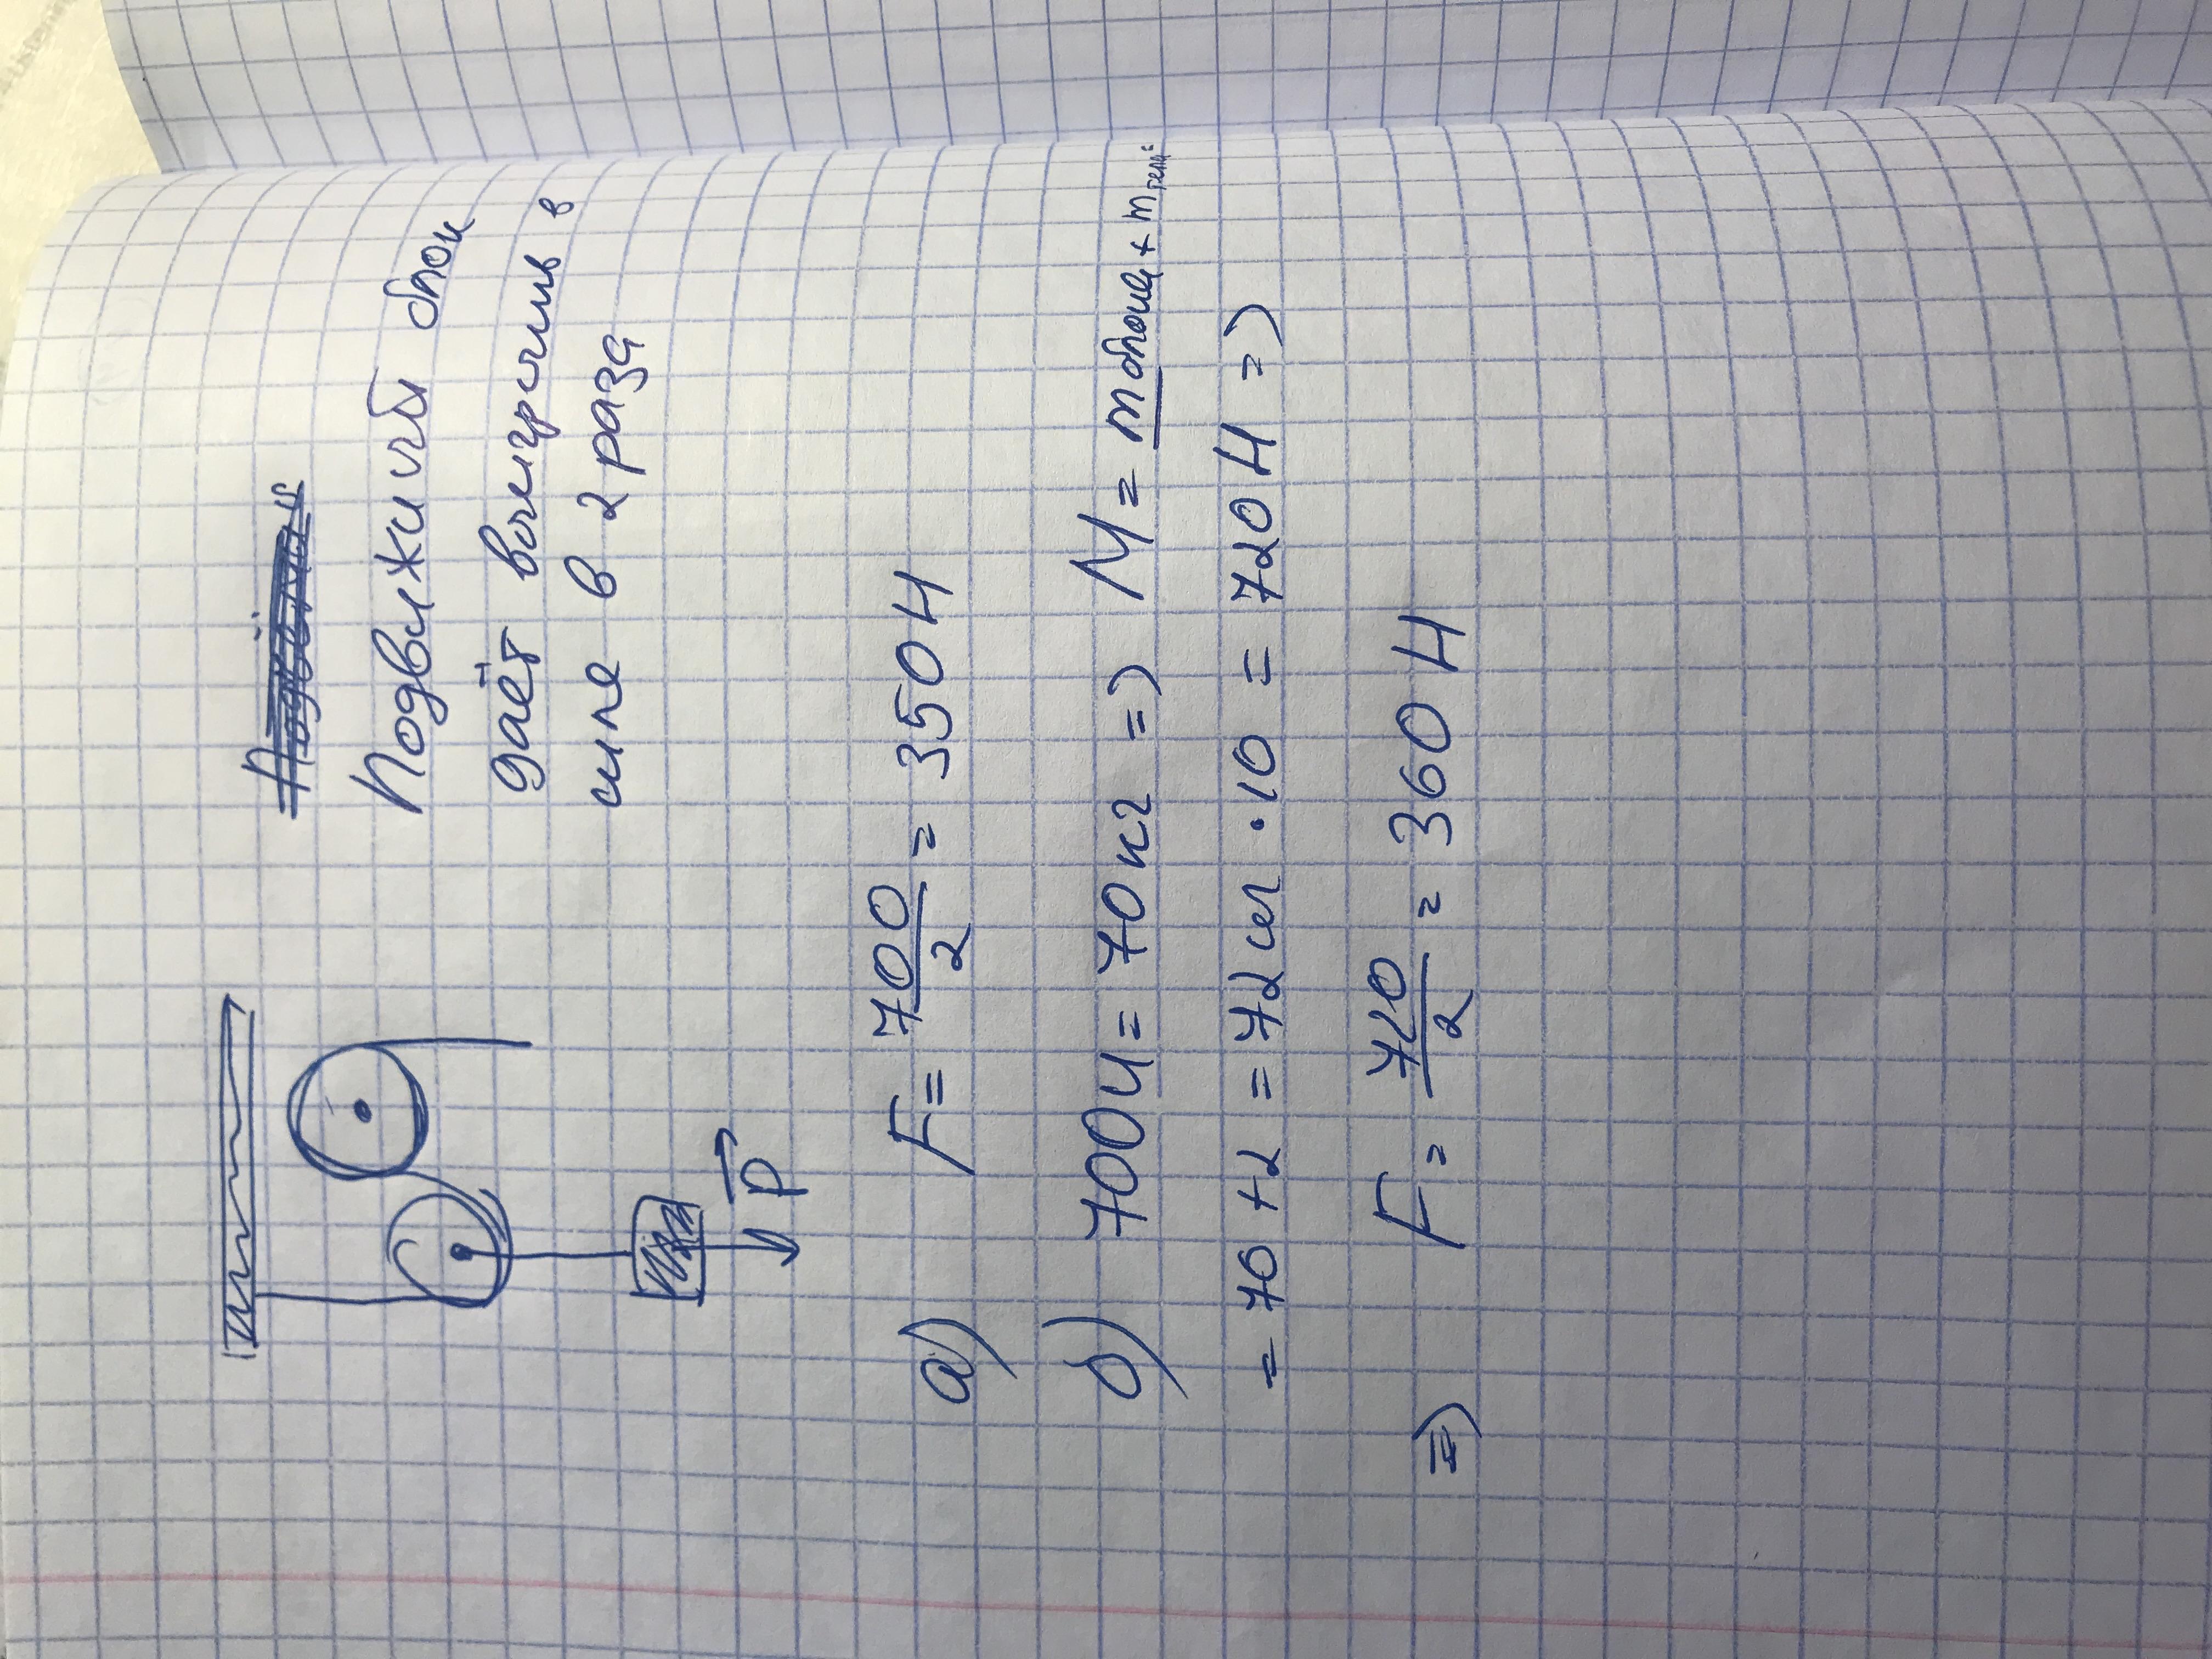 Подвижный блок
даёт выигрыш в
силе в 2 раза
P
а) F = 700/2 = 350 Н
б) 700 Н = 70 кг => M = m блока + m тела =
= 70 + 2 = 72 кг · 10 = 720 Н =>
=> F = 720/2 = 360 Н